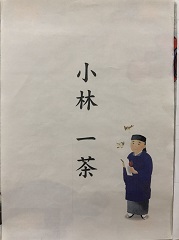 小林一茶